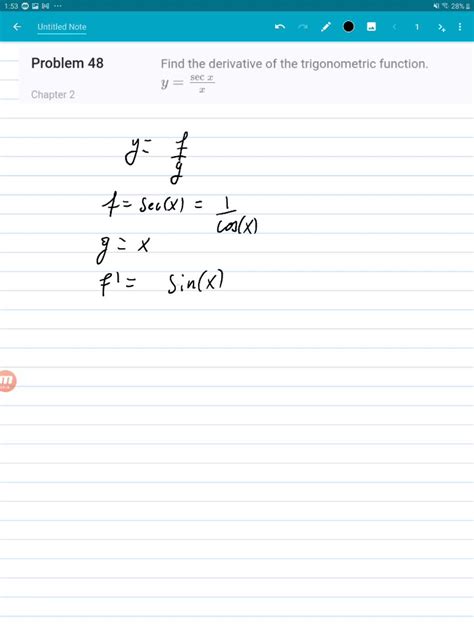 1:53 28%
Untitled Note 1
Problem 48 Find the derivative of the trigonometric function.
y = sec x / x
Chapter 2
y = f / g
f = sec(x) = 1 / cos(x)
g = x
f' = sin(x)
m